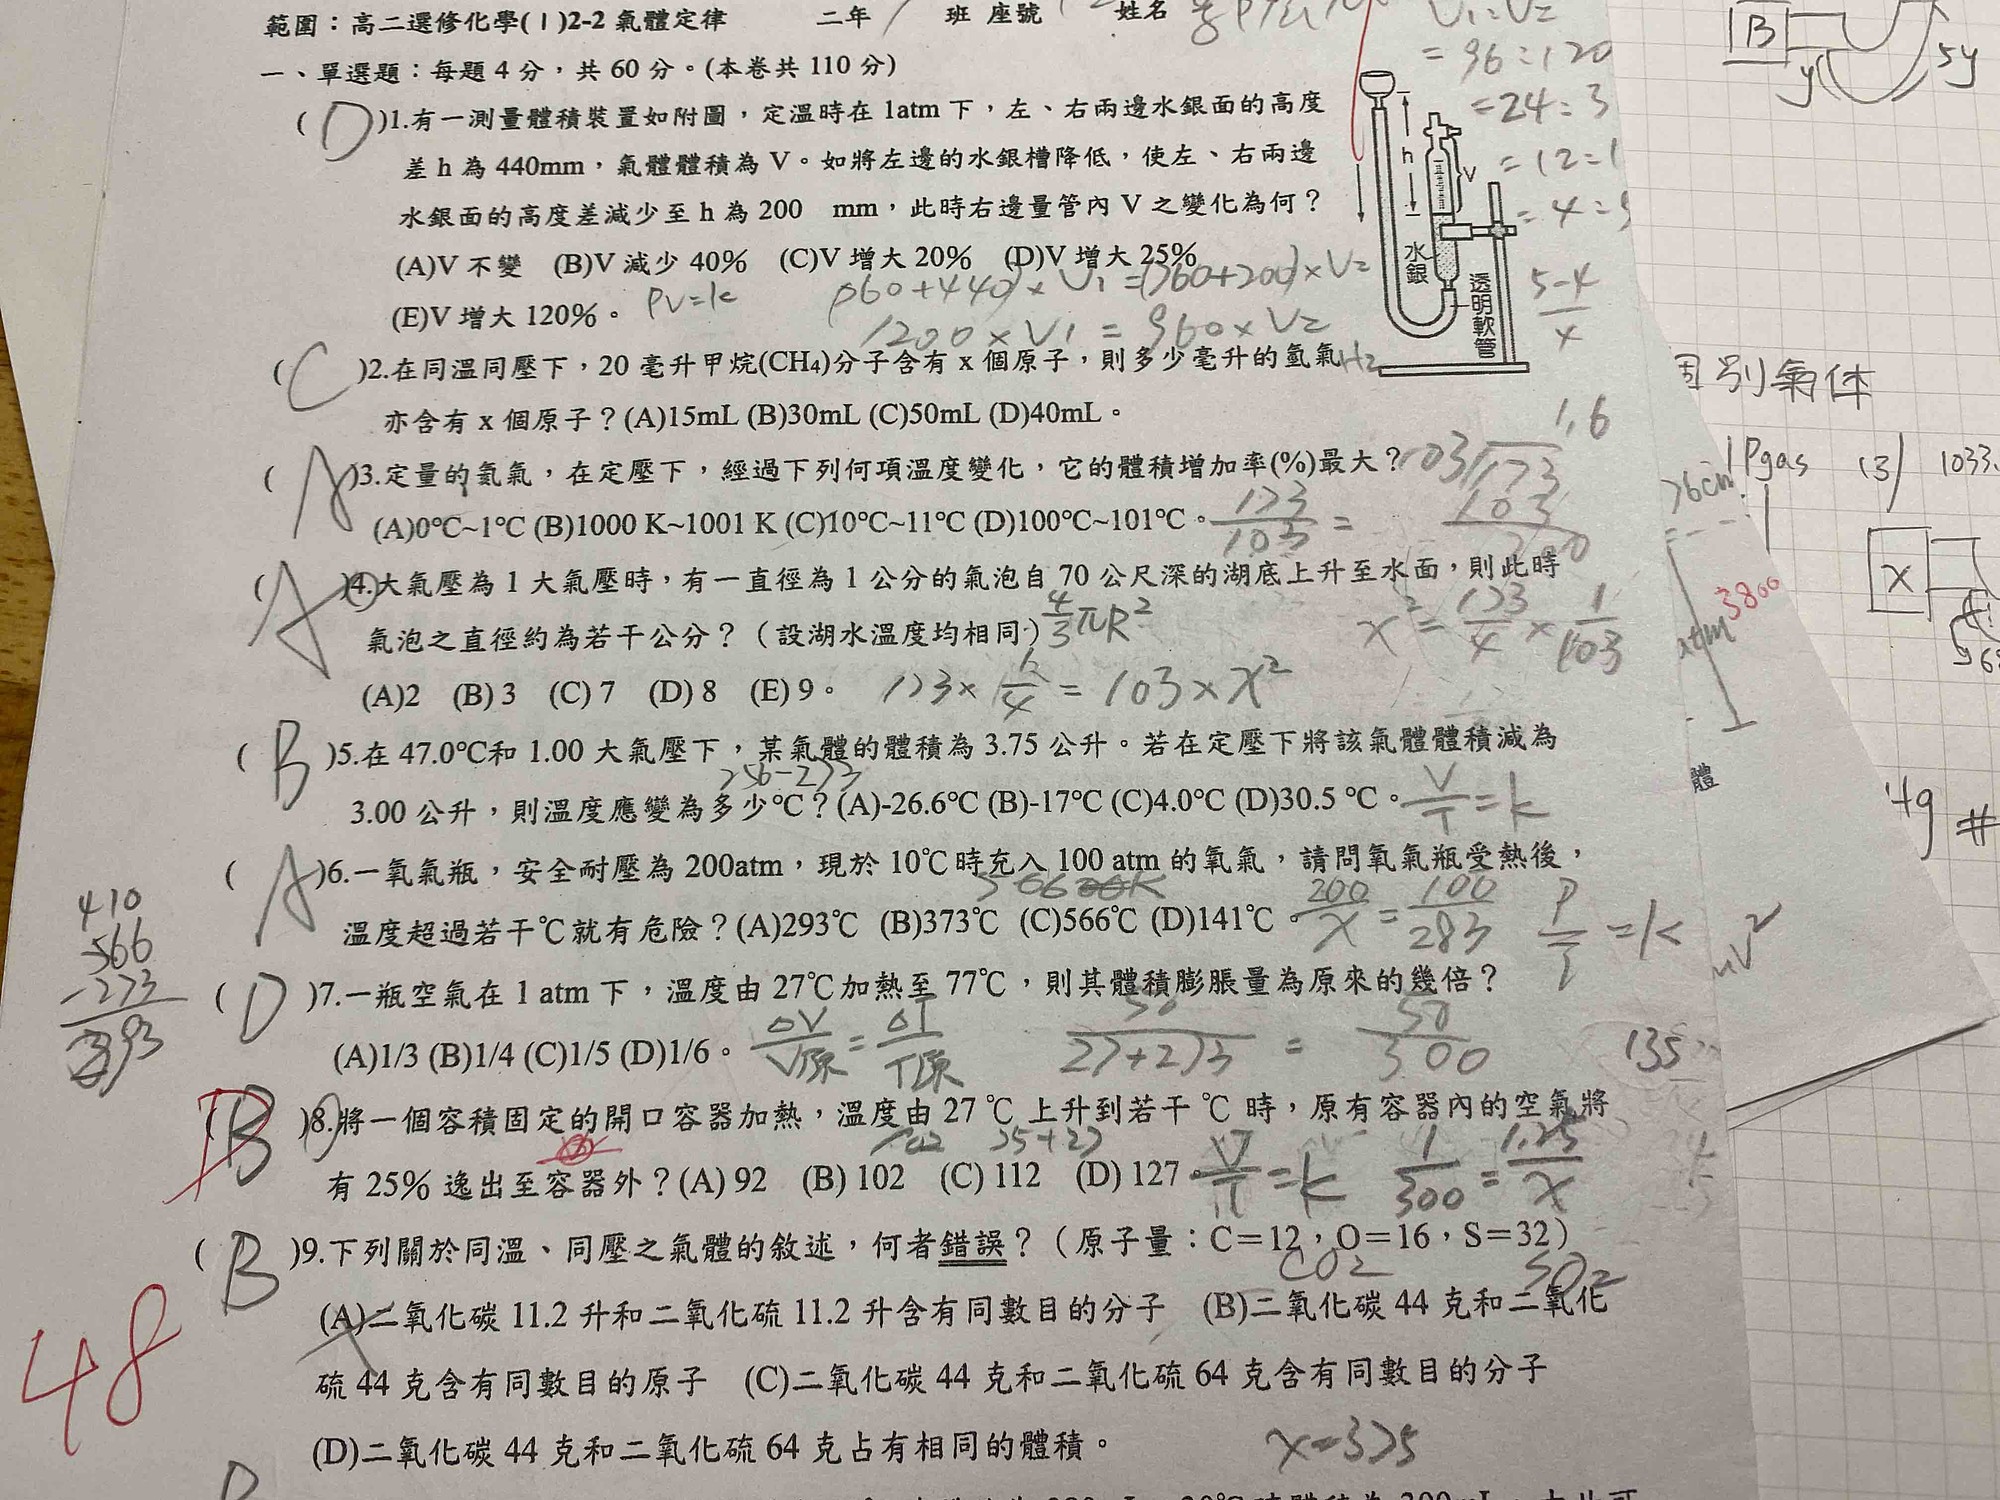 範圍：高二選修化學(Ⅰ)2-2 氣體定律 二年 班 座號 姓名
一、單選題：每題 4 分，共 60 分。(本卷共 110 分)
( D )1.有一測量體積裝置如附圖，定溫時在 1atm 下，左、右兩邊水銀面的高度
差 h 為 440mm，氣體體積為 V。如將左邊的水銀槽降低，使左、右兩邊
水銀面的高度差減少至 h 為 200 mm，此時右邊量管內 V 之變化為何？
(A)V 不變 (B)V 減少 40% (C)V 增大 20% (D)V 增大 25%
(E)V 增大 120%。 PV=k
(760+440)×V1=(760+200)×V2
1200×V1=960×V2
V1:V2
=96:120
=24:3
=12:1
5-4
4
h
V
水銀
透明軟管
( C )2.在同溫同壓下，20 毫升甲烷(CH₄)分子含有 x 個原子，則多少毫升的氫氣 H2
亦含有 x 個原子？(A)15mL (B)30mL (C)50mL (D)40mL。
( A )3.定量的氦氣，在定壓下，經過下列何項溫度變化，它的體積增加率(%)最大？
(A)0℃~1℃ (B)1000 K~1001 K (C)10℃~11℃ (D)100℃~101℃。
( A )4.大氣壓為 1 大氣壓時，有一直徑為 1 公分的氣泡自 70 公尺深的湖底上升至水面，則此時
氣泡之直徑約為若干公分？（設湖水溫度均相同） 4/3πR²
(A)2 (B) 3 (C) 7 (D) 8 (E) 9。
( B )5.在 47.0℃和 1.00 大氣壓下，某氣體的體積為 3.75 公升。若在定壓下將該氣體體積減為
256-273
3.00 公升，則溫度應變為多少℃？(A)-26.6℃ (B)-17℃ (C)4.0℃ (D)30.5 ℃。 V/T=k
( A )6.一氧氣瓶，安全耐壓為 200atm，現於 10℃時充入 100 atm 的氧氣，請問氧氣瓶受熱後，
溫度超過若干℃就有危險？(A)293℃ (B)373℃ (C)566℃ (D)141℃。 200/x=100/283 P/T=k
410
566
-273
293
( D )7.一瓶空氣在 1 atm 下，溫度由 27℃加熱至 77℃，則其體積膨脹量為原來的幾倍？
(A)1/3 (B)1/4 (C)1/5 (D)1/6。 △V/V原=△T/T原 50/27+273=50/300
( B )8.將一個容積固定的開口容器加熱，溫度由 27 ℃ 上升到若干 ℃ 時，原有容器內的空氣將
102 75+27
有 25% 逸出至容器外？(A) 92 (B) 102 (C) 112 (D) 127。 V/T=k 1/300=1.25/x
( B )9.下列關於同溫、同壓之氣體的敘述，何者錯誤？（原子量：C＝12，O＝16，S＝32）
CO2 SO2
(A)二氧化碳 11.2 升和二氧化硫 11.2 升含有同數目的分子 (B)二氧化碳 44 克和二氧化
硫 44 克含有同數目的原子 (C)二氧化碳 44 克和二氧化硫 64 克含有同數目的分子
(D)二氧化碳 44 克和二氧化硫 64 克占有相同的體積。
x=375
48
B
y
5y
個別氣体
Pgas (3) 1033.
76cm
3800
atm
X
體
Hg #
135